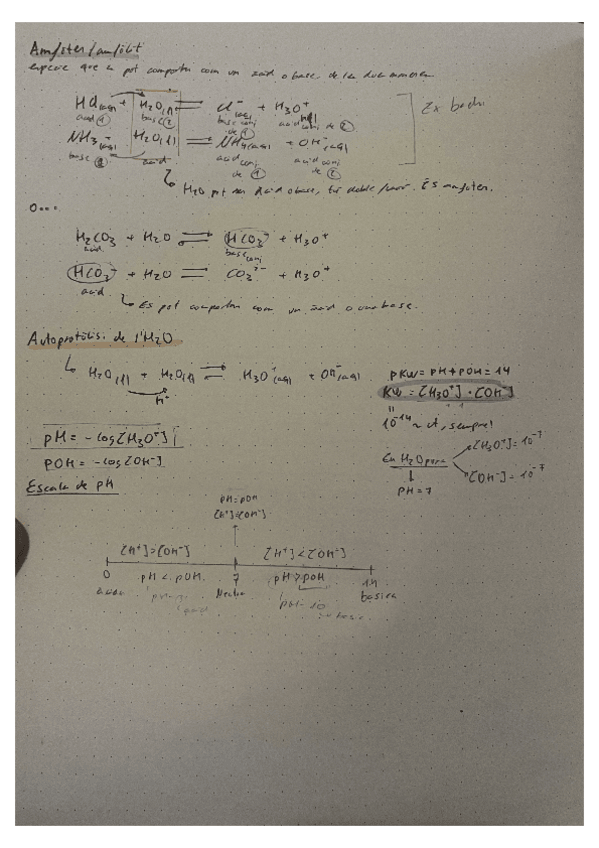 Amfòter/amfòlit
espècie que es pot comportar com un àcid o base, de les dues maneres.
HCl(aq) + H₂O(l) ⇌ Cl⁻(aq) + H₃O⁺
àcid ① base ② base conj de ① àcid conj de ②
NH₃(aq) + H₂O(l) ⇌ NH₄⁺(aq) + OH⁻(aq)
base àcid àcid conj de ① conj de ②
↳ H₂O pot ser àcid o base, té doble. És amfòter.
O...
H₂CO₃ + H₂O ⇌ HCO₃⁻ + H₃O⁺
àcid base conj
HCO₃⁻ + H₂O ⇌ CO₃²⁻ + H₃O⁺
àcid
↳ Es pot comportar com un àcid o una base.
Autoprotòlisi de l'H₂O
↳ H₂O(l) + H₂O(l) ⇌ H₃O⁺(aq) + OH⁻(aq)
H⁺
pKw = pH + pOH = 14
Kw = [H₃O⁺] · [OH⁻]
10⁻¹⁴ , sempre!
pH = -log[H₃O⁺]
pOH = -log[OH⁻]
En H₂O pura [H₃O⁺] = 10⁻⁷
[OH⁻] = 10⁻⁷
pH = 7
Escala de pH
pH = pOH
[H⁺] = [OH⁻]
[H⁺] > [OH⁻] [H⁺] < [OH⁻]
0 pH < pOH 7 pH > pOH 14
Àcida Neutre bàsica